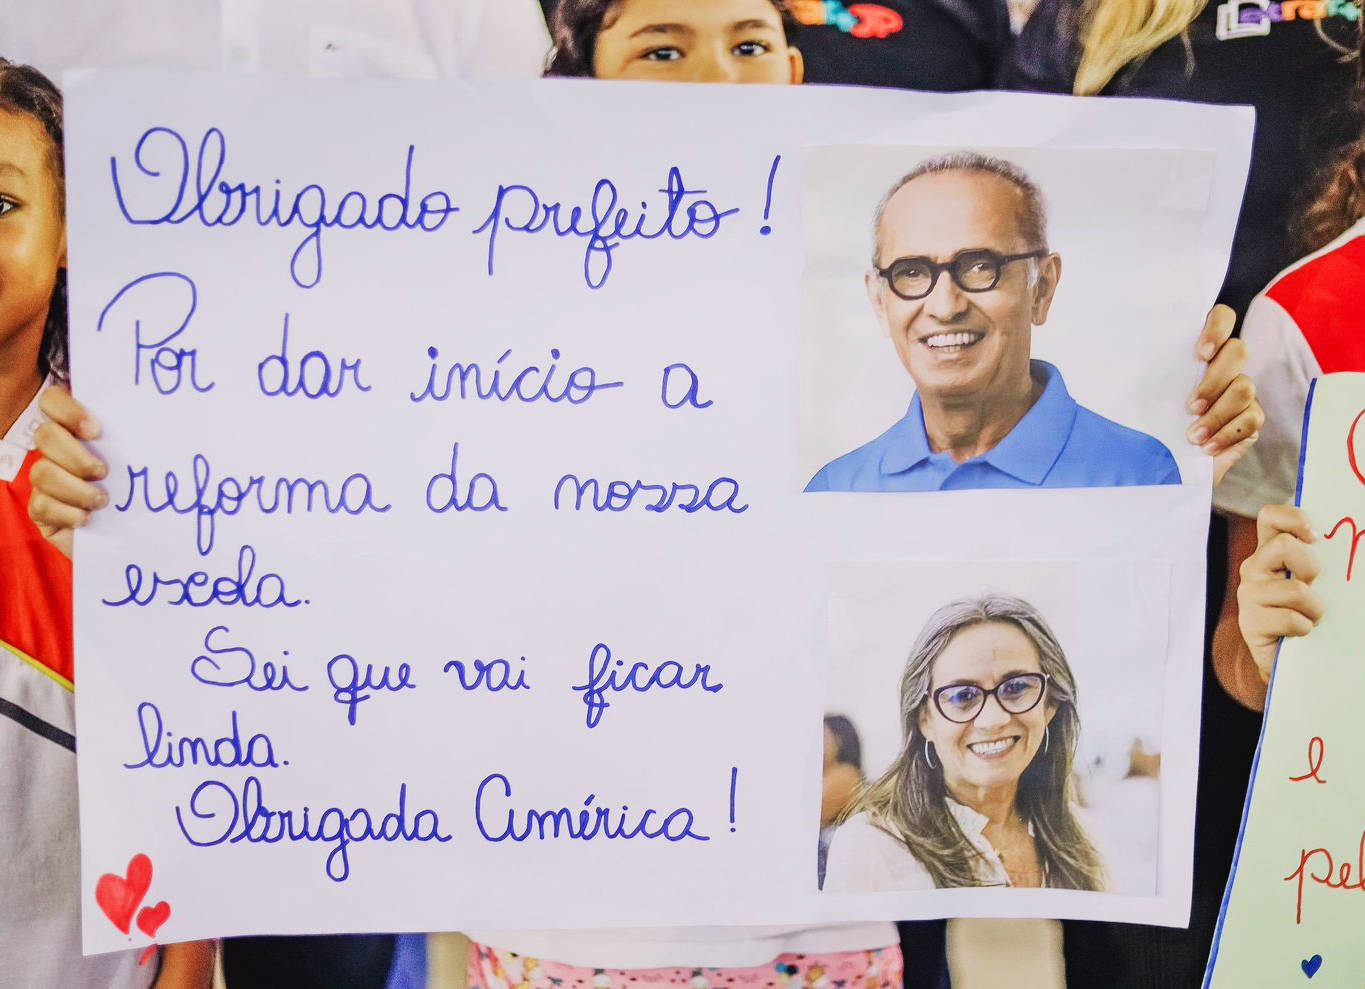 Obrigado prefeito!
Por dar início a
reforma da nossa
escola.
Sei que vai ficar
linda.
Obrigada América!
e